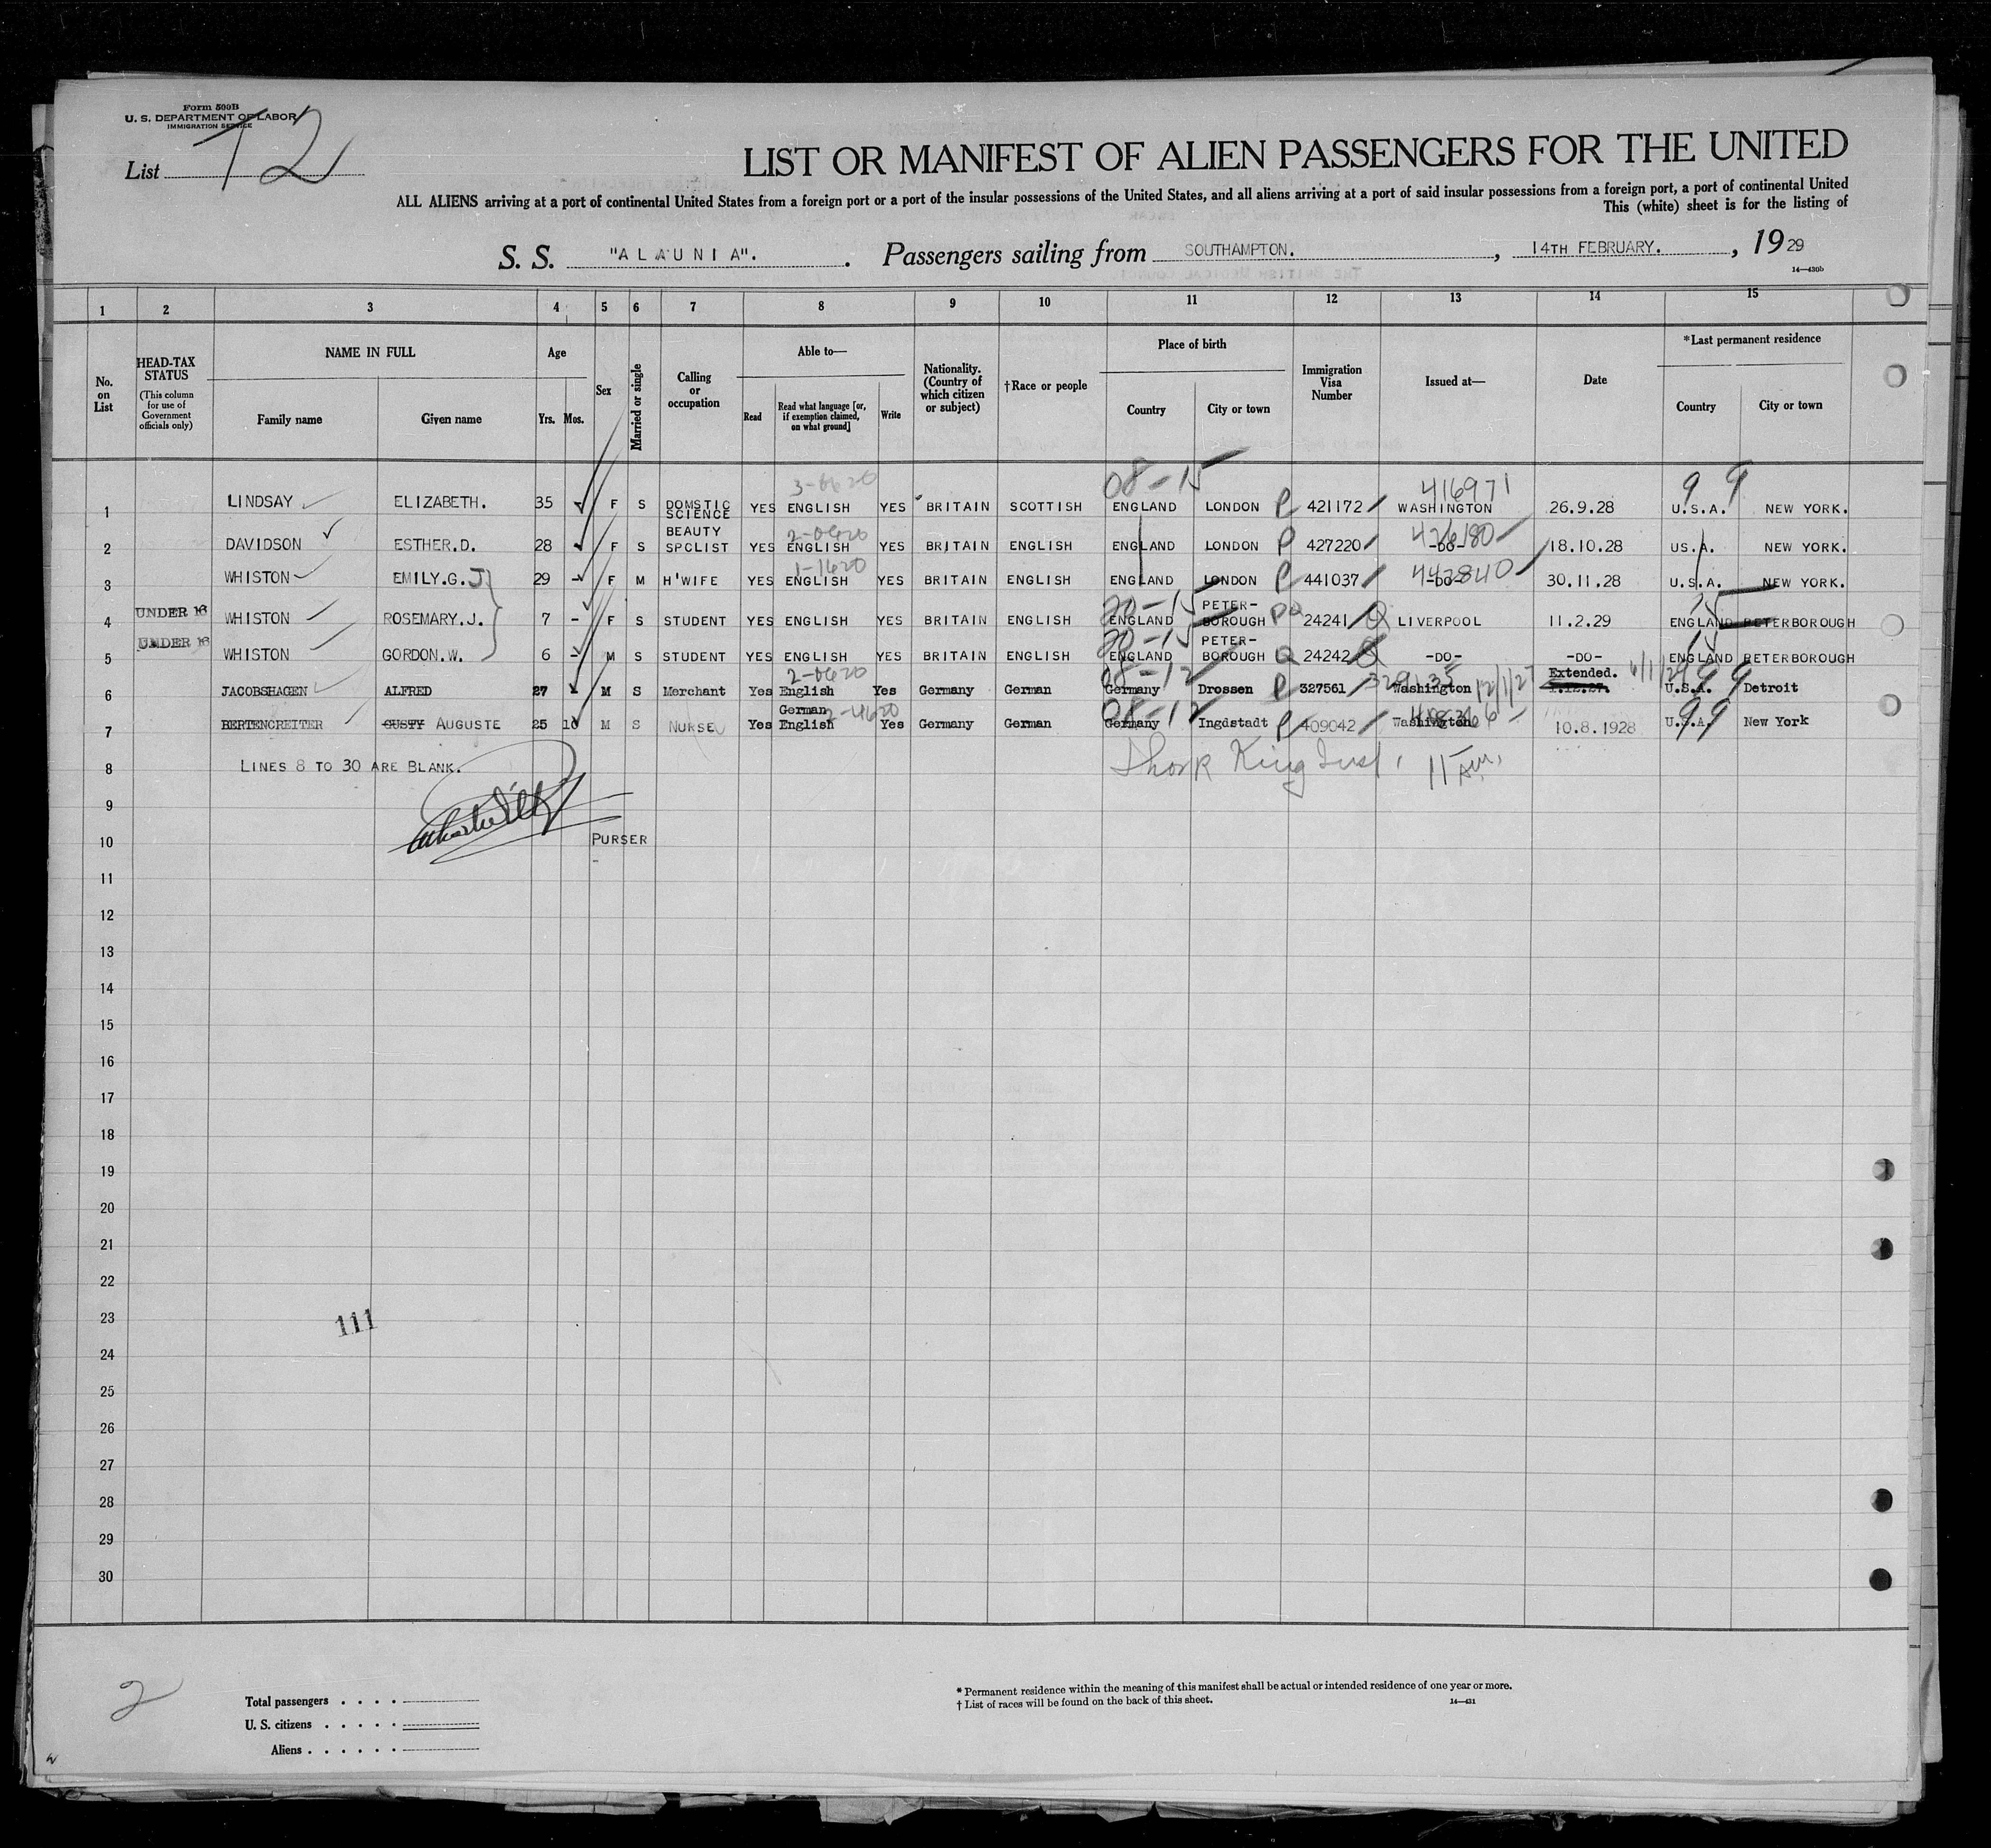 Form 500B
U. S. DEPARTMENT OF LABOR
IMMIGRATION SERVICE
List 12
LIST OR MANIFEST OF ALIEN PASSENGERS FOR THE UNITED
ALL ALIENS arriving at a port of continental United States from a foreign port or a port of the insular possessions of the United States, and all aliens arriving at a port of said insular possessions from a foreign port, a port of continental United
This (white) sheet is for the listing of
S. S. "ALAUNIA". Passengers sailing from SOUTHAMPTON. , 14TH FEBRUARY. , 1929
14—430b
1 2 3 4 5 6 7 8 9 10 11 12 13 14 15
No. on List
HEAD-TAX STATUS
(This column for use of Government officials only)
NAME IN FULL
Family name Given name
Age
Yrs. Mos.
Sex
Married or single
Calling or occupation
Able to—
Read Read what language [or, if exemption claimed, on what ground] Write
Nationality. (Country of which citizen or subject)
†Race or people
Place of birth
Country City or town
Immigration Visa Number
Issued at—
Date
*Last permanent residence
Country City or town
3-6620 08-15 416971 9 9
1 LINDSAY ELIZABETH. 35 F S DOMSTIC SCIENCE YES ENGLISH YES BRITAIN SCOTTISH ENGLAND LONDON P 421172 WASHINGTON 26.9.28 U.S.A. NEW YORK.
2-0620 426180
2 DAVIDSON ESTHER.D. 28 F S BEAUTY SPCLIST YES ENGLISH YES BRITAIN ENGLISH ENGLAND LONDON P 427220 -DO- 18.10.28 US.A. NEW YORK.
1-1620 442840
3 WHISTON EMILY.G.J 29 - F M H'WIFE YES ENGLISH YES BRITAIN ENGLISH ENGLAND LONDON P 441037 -DO- 30.11.28 U.S.A. NEW YORK.
20-15 15
4 UNDER 16 WHISTON ROSEMARY.J. 7 - F S STUDENT YES ENGLISH YES BRITAIN ENGLISH ENGLAND PETER-BOROUGH 24241 LIVERPOOL 11.2.29 ENGLAND PETERBOROUGH
20-15 15
5 UNDER 16 WHISTON GORDON.W. 6 - M S STUDENT YES ENGLISH YES BRITAIN ENGLISH ENGLAND PETER-BOROUGH Q 24242 -DO- -DO- ENGLAND PETERBOROUGH
2-0620 08-12 12/1/27 Extended. 9 9
6 JACOBSHAGEN ALFRED 27 M S Merchant Yes English Yes Germany German Germany Drossen P 327561 Washington 1.12.27. U.S.A. Detroit
German 2-4620 08-12 99
7 BERTENCREITER GUSTY AUGUSTE 25 10 M S NURSE Yes English Yes Germany German Germany Ingdstadt P 409042 Washington 10.8.1928 U.S.A. New York
8 LINES 8 TO 30 ARE BLANK. King 11 am.
9
10 PURSER
11
12
13
14
15
16
17
18
19
20
21
22
23 111
24
25
26
27
28
29
30
2
Total passengers . . . .
U. S. citizens . . . . .
Aliens . . . . . .
* Permanent residence within the meaning of this manifest shall be actual or intended residence of one year or more.
† List of races will be found on the back of this sheet.
14—431